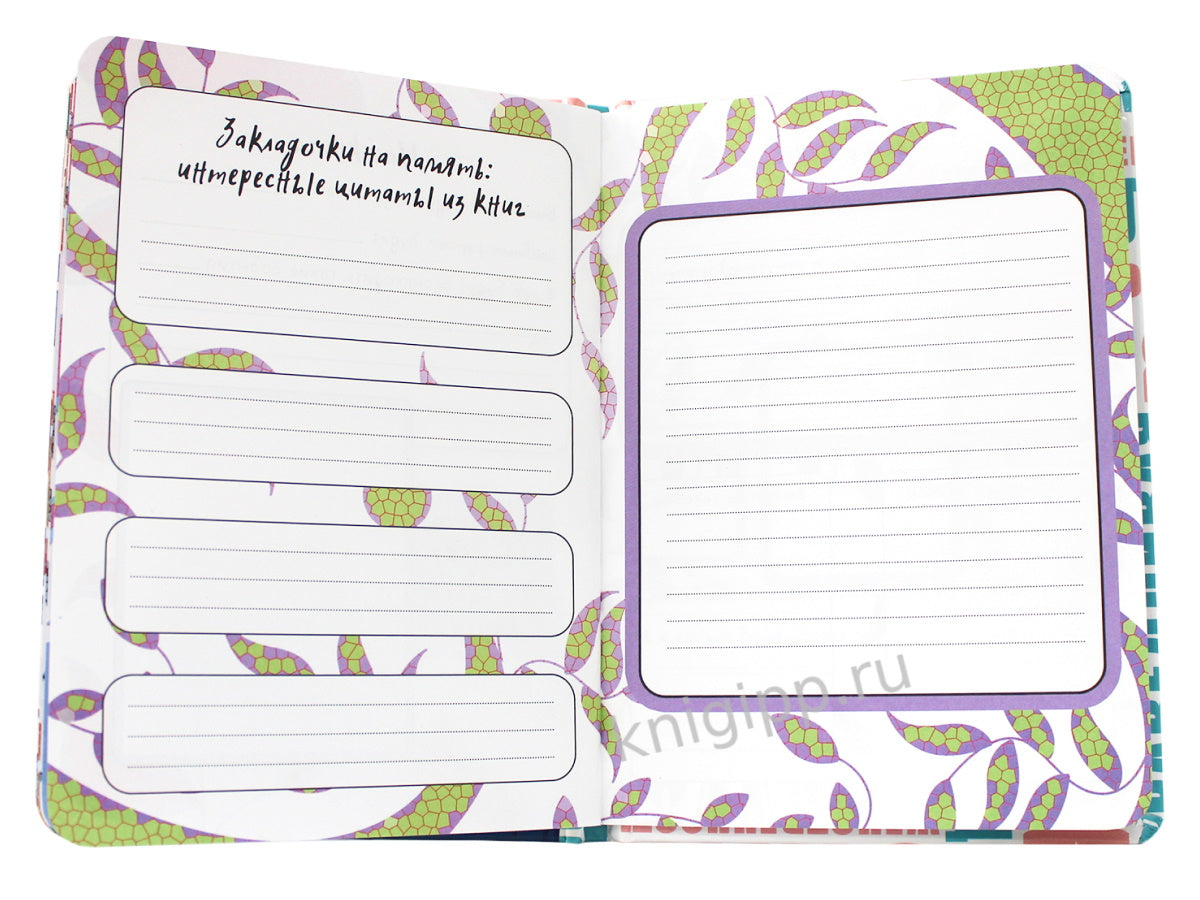 Закладочки на память:
интересные цитаты из книг
knigipp.ru